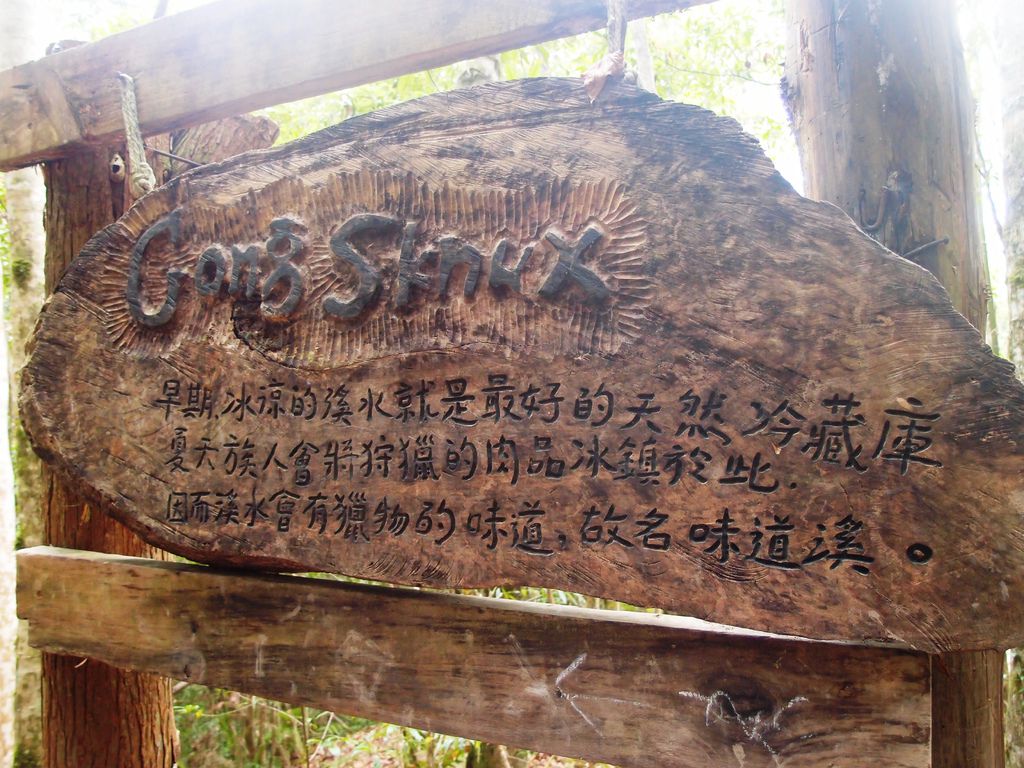 Gong Sknux
早期,冰凉的溪水就是最好的天然冷藏庫
夏天族人會將狩獵的肉品冰鎮於此.
因而溪水會有獵物的味道,故名味道溪。